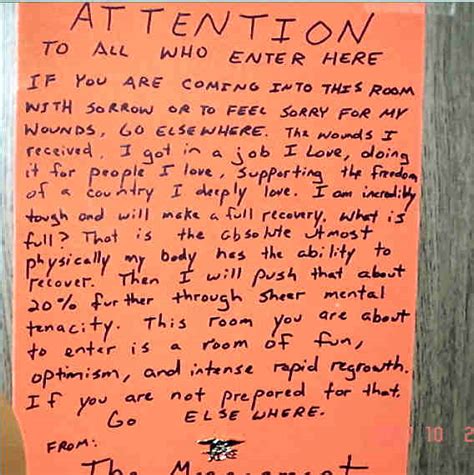 ATTENTION
TO ALL WHO ENTER HERE
IF YOU ARE COMING INTO THIS ROOM
WITH SORROW OR TO FEEL SORRY FOR MY
WOUNDS, GO ELSEWHERE. The wounds I
received, I got in a job I Love, doing
it for people I love, supporting the freedom
of a country I deeply love. I am incredibly
tough and will make a full recovery. What is
full? That is the absolute utmost
physically my body has the ability to
recover. Then I will push that about
20% further through sheer mental
tenacity. This room you are about
to enter is a room of fun,
optimism, and intense rapid regrowth.
If you are not prepared for that,
Go ELSEWHERE.
FROM:
The Management
10 2